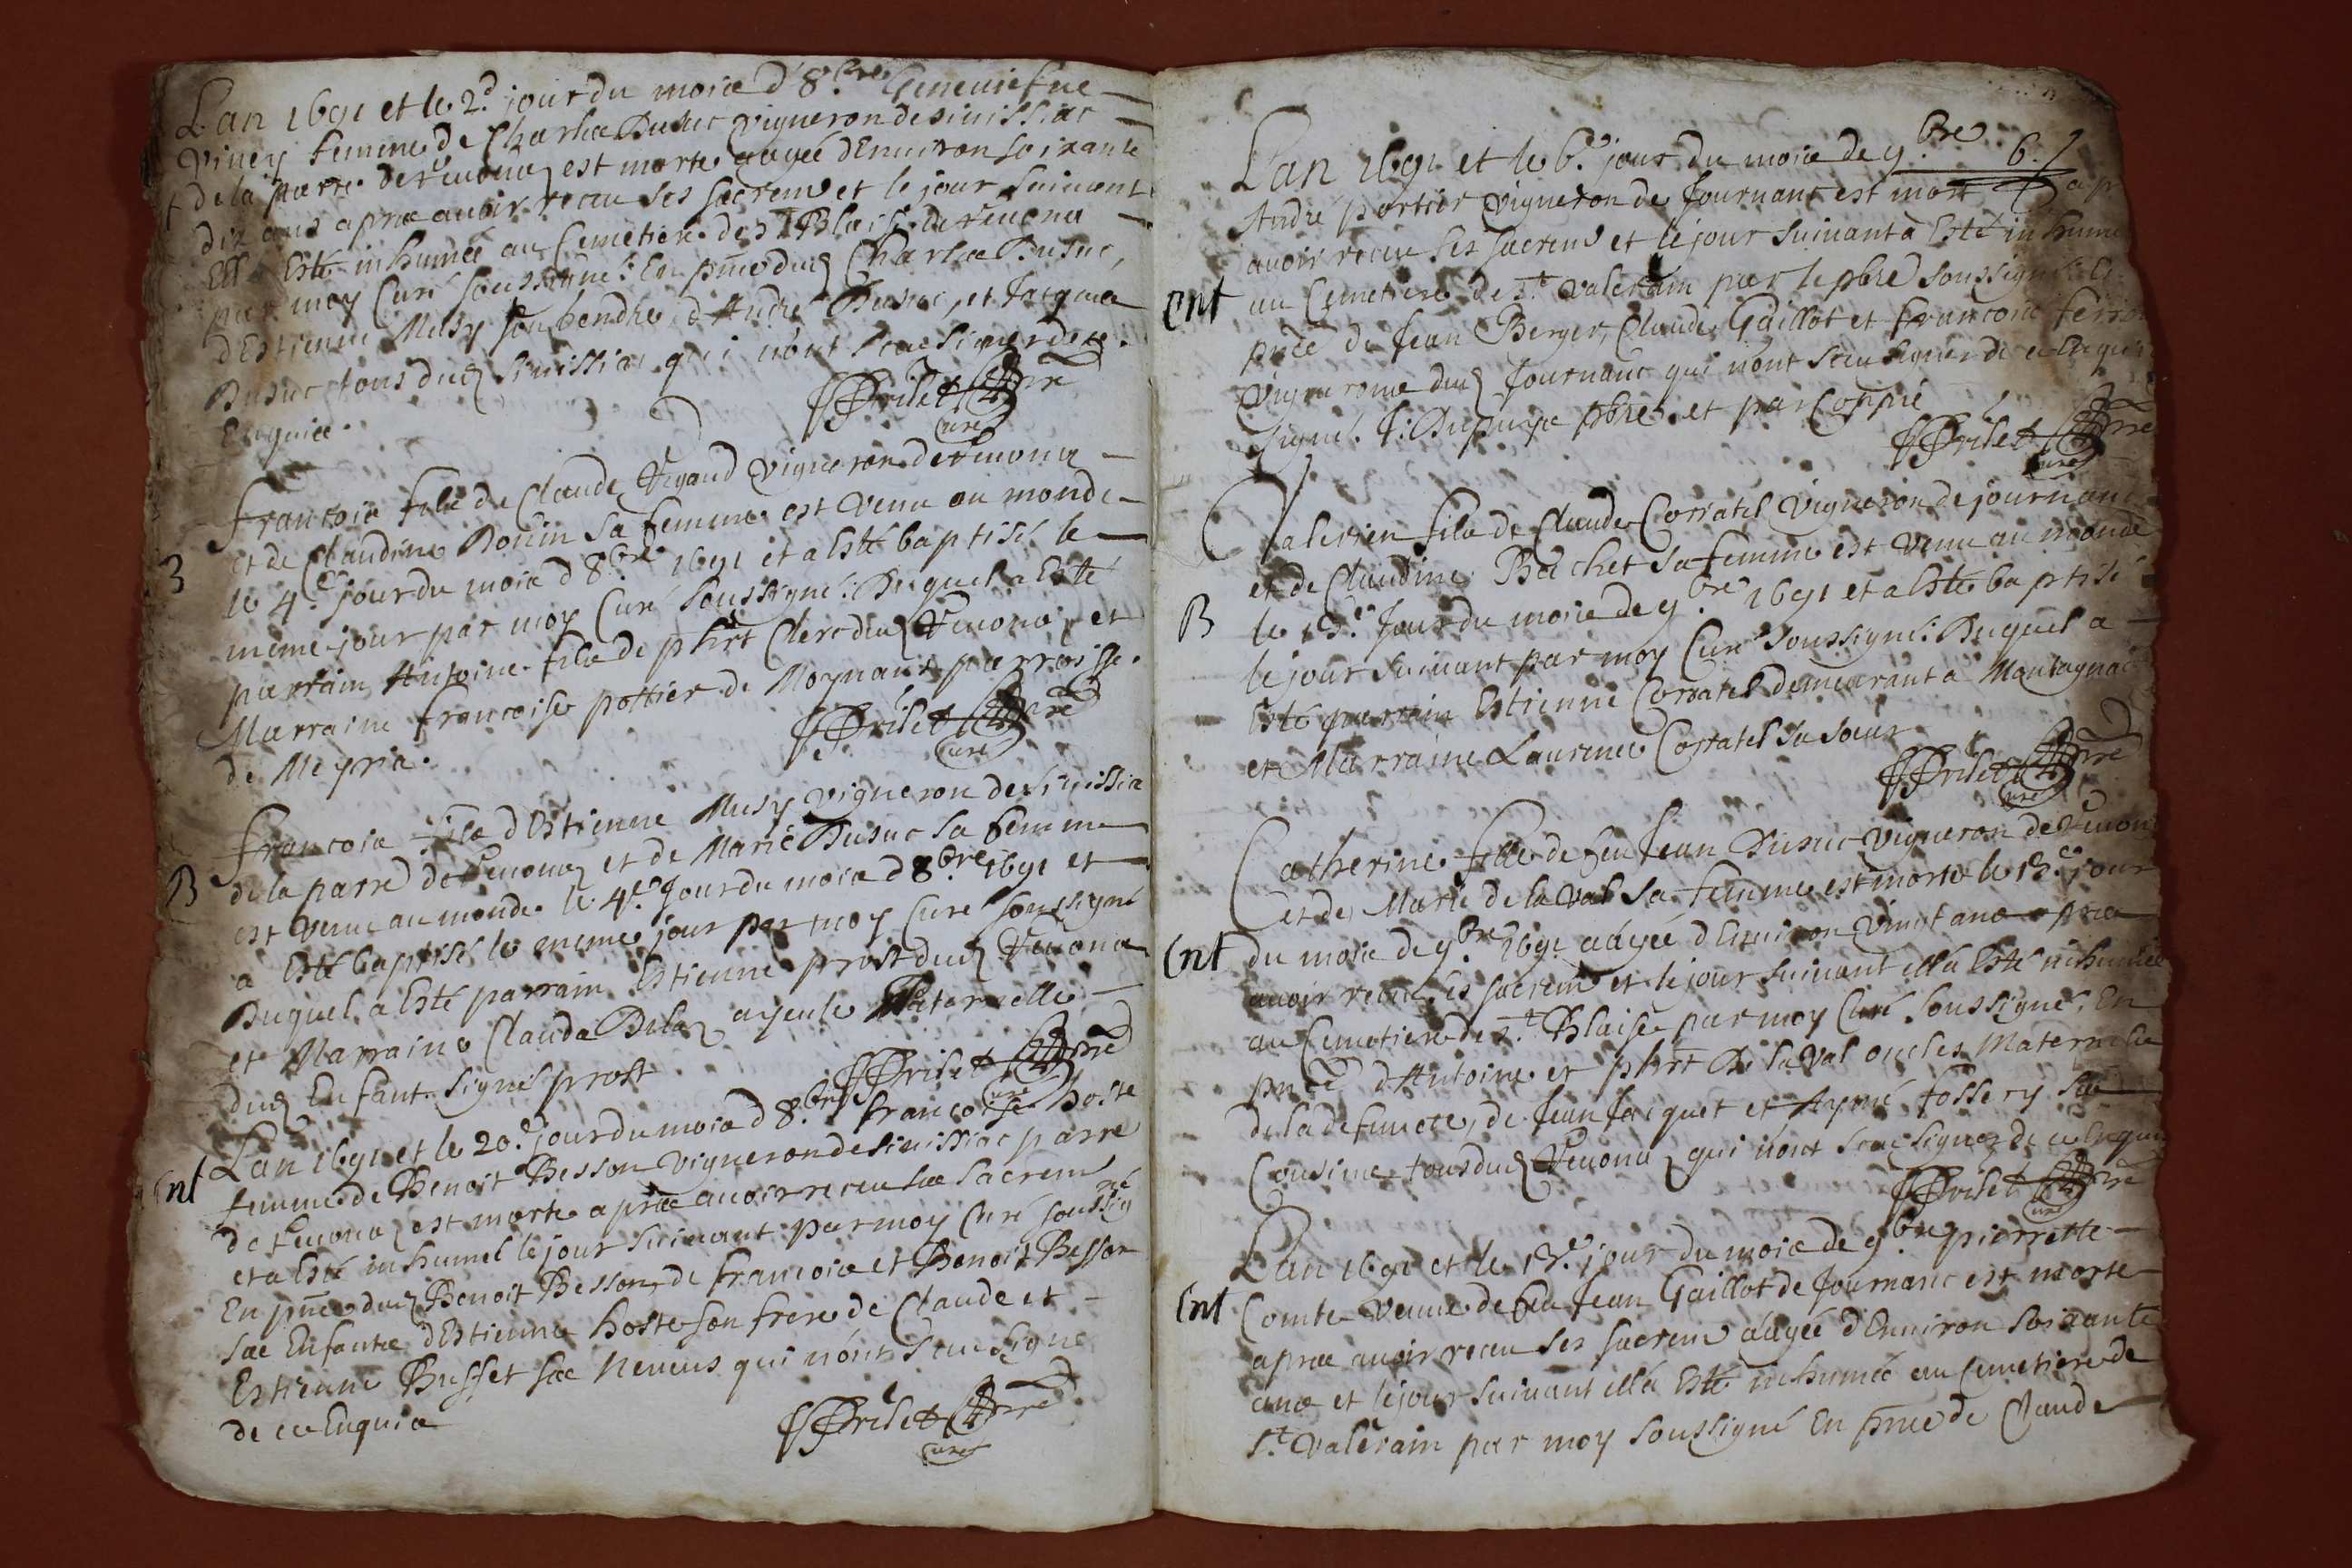 Lan 1691 et le 2.d jour du mois d 8.bre Geneuiefue
Viney femme de Charles Dusuc vigneron de simissiac
de la parre de Reuonas est morte aagée d'Enuiron soixante
dix ans apres auoir receu ses sacrem et le jour suiuant
Ell a Esté inhumée au Cemetiere de St Blaise de Reuonas
par moy Curé soussigné: En pnce dud Charles Dusuc,
d'Estienne Musy son gendre, d'André Dusuc, et Jacques
Dusuc tous dud simissiac qui nont sceu signer de ce.
Enquis.
Prilet pre
curé
francois fils de Claude Vigaud vigneron de Reuonas
B
et de Claudine Bouin sa femme est venu au monde
le 4.e jour du mois d 8.bre 1691 et a Esté baptisé le
meme jour par moy Curé soussigné: Duquel a Esté
parrain Antoine fils de phrt Clerc dud Reuonas et
Marraine francoise pottier de Mognans parroisse
de Meyria.
Prilet pre
curé
francois fils d'Estienne Musy vigneron de simissia
B
de la parre de Reuonas et de Marie Dusuc sa femme
est venu au monde le 4.e Jour du mois d 8.bre 1691 et
a Esté baptisé le meme jour par moy Curé soussigné
Duquel a Esté parrain Estienne prost dud Reuonas
et Marraine Clauda Dela ayeule Maternelle
dud Enfant signé prost
Prilet pre
curé
Lan 1691 et le 20.e jour du mois d 8.bre francoise hoste
Ent
femme de Benoit Besson vigneron de simissiac parre
de Reuonas est morte apres auoir receu ses sacrem
et a Esté inhumee le jour suiuant par moy Curé soussigné
En pnce dud Benoit Besson, de francois et Benoit Besson
ses Enfants d'Estienne hoste son frere de Claude et
Estienne Busset ses neueus qui nont sceu signe
de ce Enquis
Prilet pre
curé
Lan 1691 et le 6.e jour du mois de 9.bre 6.
André portier vigneron de Journanc est mort apr
auoir receu ses sacrem et le jour suiuant a Esté inhumé
Ent
au Cemetiere de St Valerain par le pbre soussigné
pnce de Jean Berger, Claude Gaillot et francois
vignerons dud Journanc qui nont sceu signer de ce Enquis
signé. Dupuys pbre et par Coppie
Prilet pre
curé
Valerien fils de Claude Corratel vigneron de journanc
et de Claudine Bachet sa femme est venu au monde
B
le 13.e Jour du mois de 9.bre 1691 et a Esté baptisé
le jour suiuant par moy Curé soussigné: Duquel a
Esté parrain Estienne Corratel demeurant a Montagnac
et Marraine Laurence Corratel sa soeur
Prilet pre
curé
Catherine fille de feu Jean Dusuc vigneron de Reuon
et de Marie de la Val sa femme est morte le 13.e jour
Ent
du mois de 9.bre 1691 aagée d'Enuiron vingt ans apres
auoir receu ses sacrem et le jour suiuant ell a Esté inhumée
au Cemetiere de St Blaise par moy Curé soussigné: En
pnce d'Antoine et phrt De la Val oncles Maternelle
de la defuncte, de Jean Jacquet et Aymé fossery ses
Cousins tous dud Reuonas qui nont sceu signer de ce Enquis
Prilet pre
curé
Lan 1691 et le 13.e jour du mois de 9.bre pierrette
Ent
Comte veuue de feu Jean Gaillot de Journanc est morte
apres auoir receu ses sacrem aagée d'Enuiron soixante
ans et le jour suiuant ell a Esté inhumée au Cemetiere de
St Valerain par moy soussigné En pnce de Claude